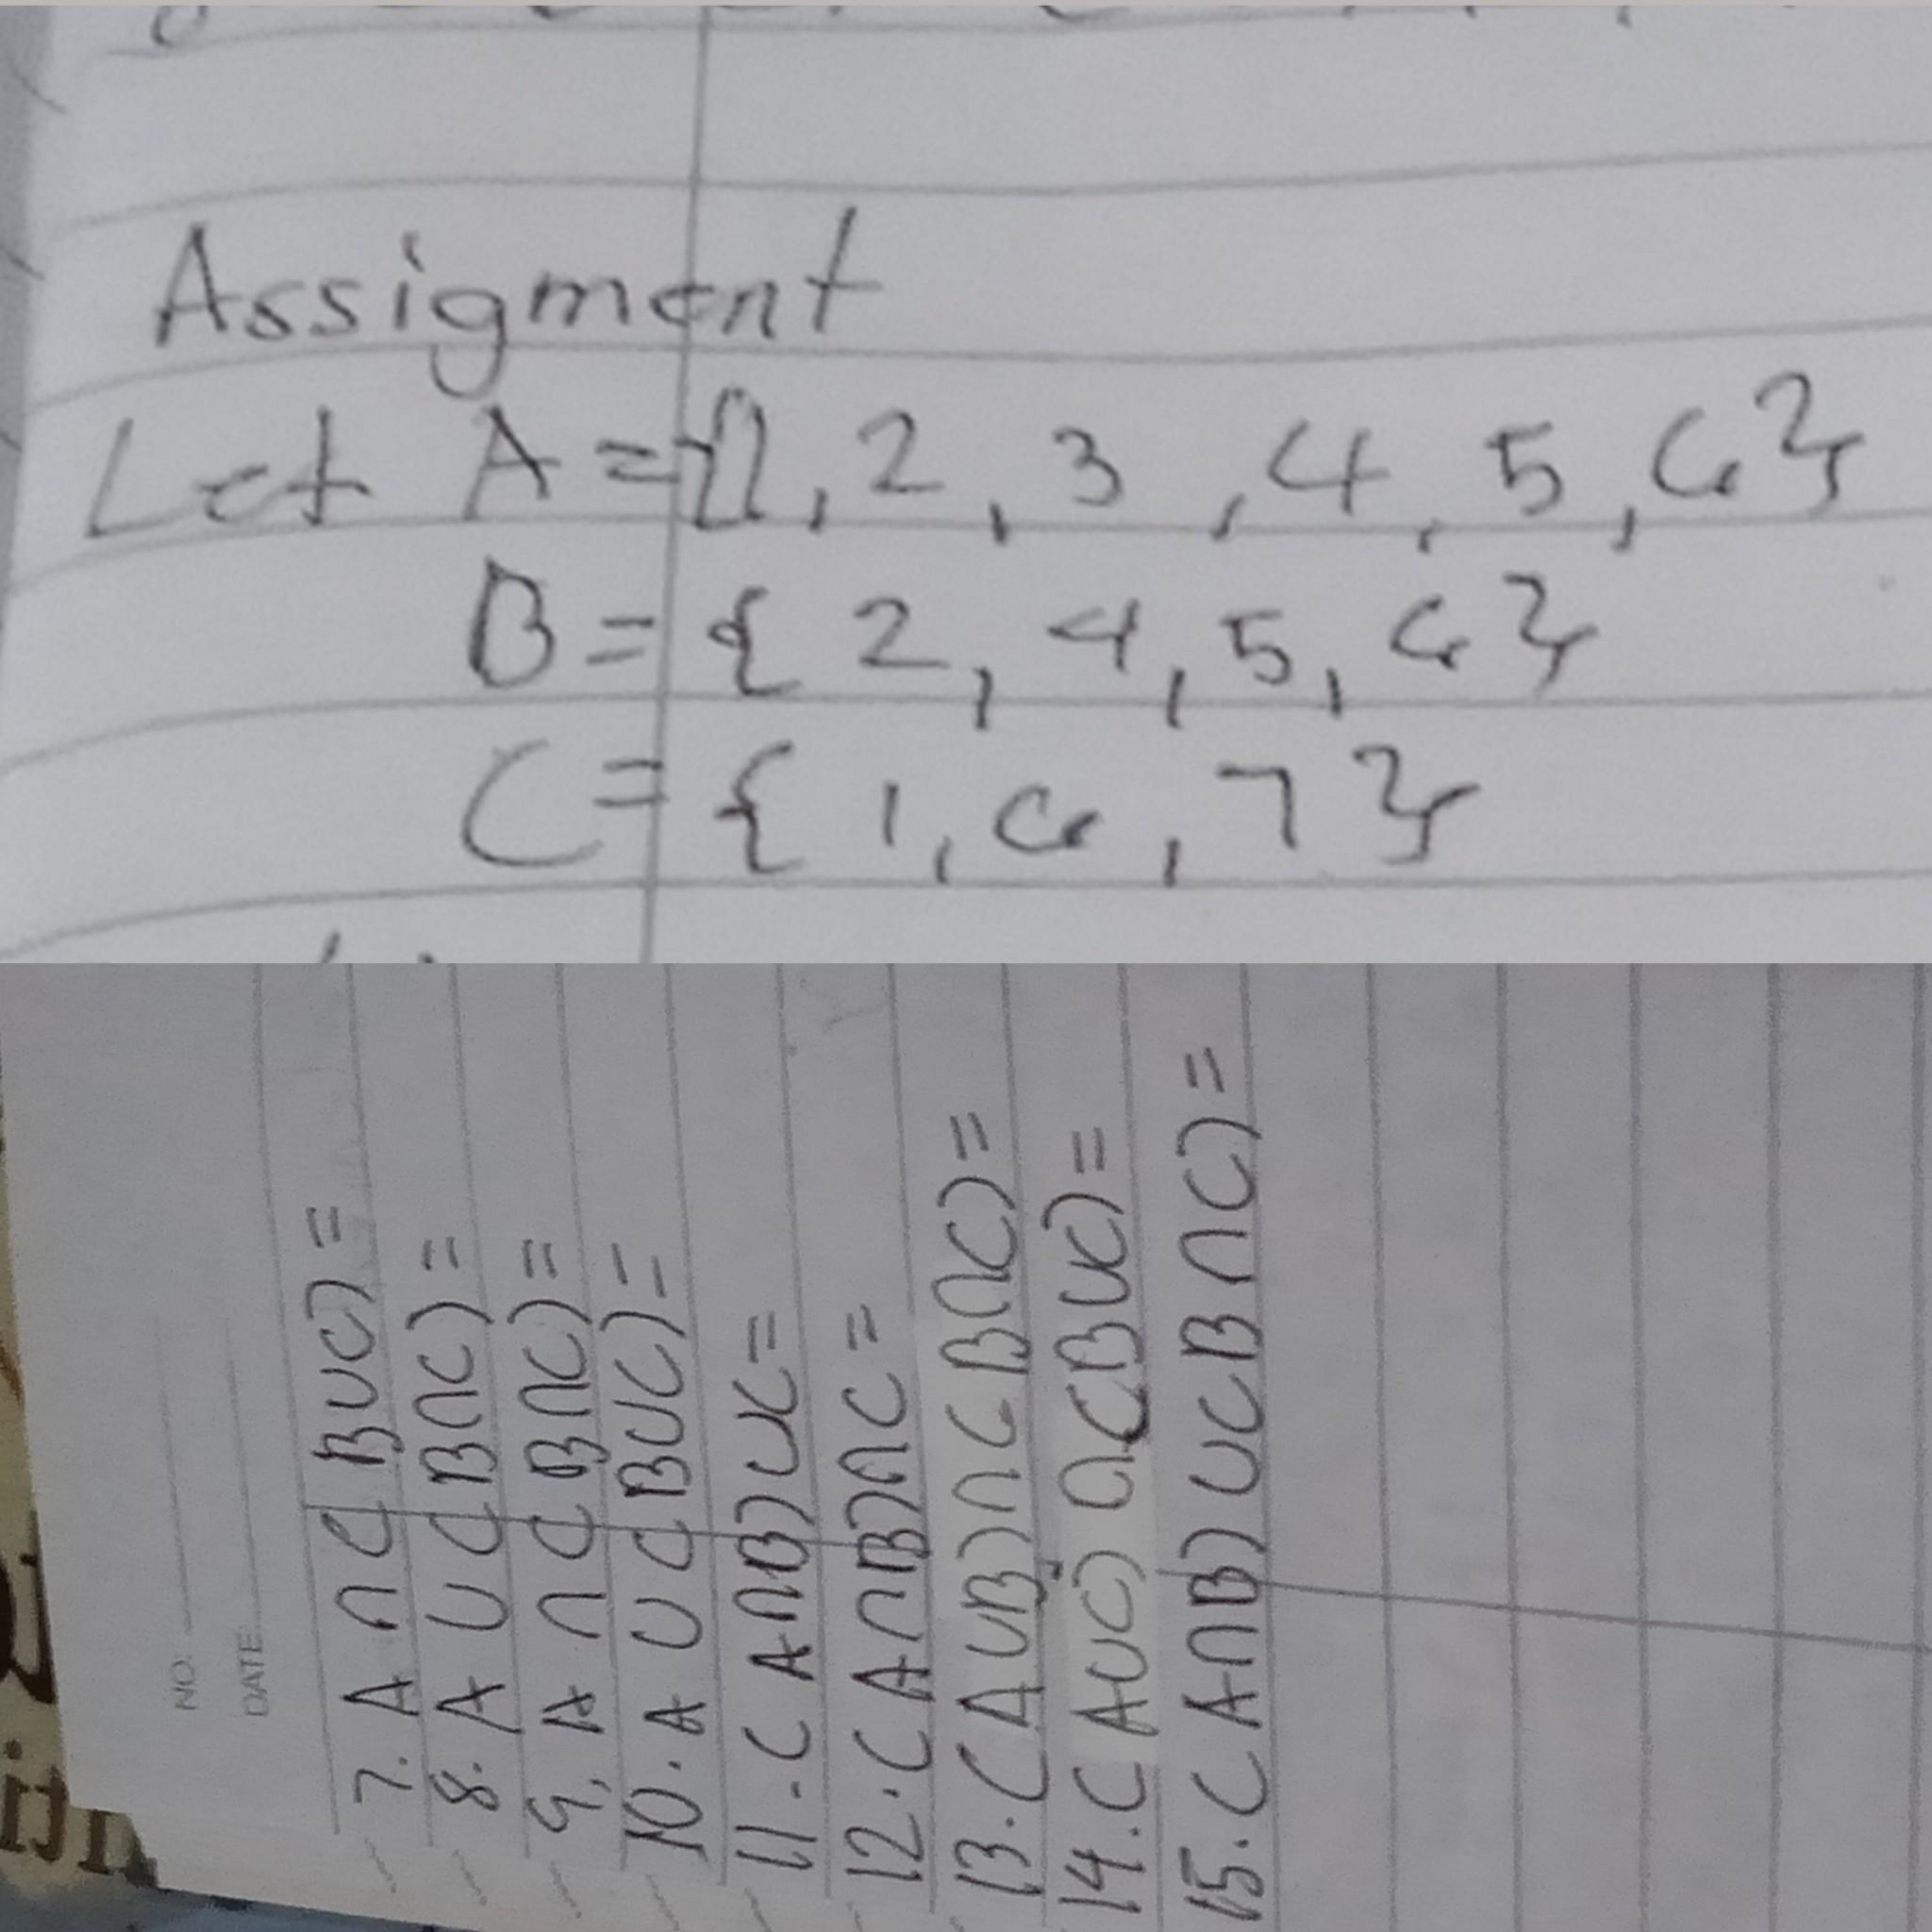 Assigment
Let A = {1, 2, 3, 4, 5, 6}
B = { 2, 4, 5, 6}
C = { 1, 6, 7 }
NO.
DATE
7. A ∩ ( B∪C) =
8. A ∪ ( B∩C) =
9. A ∩ ( B∩C) =
10. A ∪ ( B∪C) =
11. ( A∩B) ∪C =
12. ( A∩B)∩C =
13. ( A∪B)∩( B∩C) =
14. ( A∪C) ∩(B∪C) =
15. ( A∩B) ∪( B∩C) =